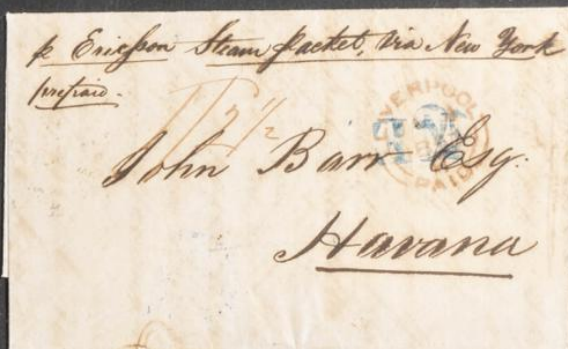 p Ericsson Steam packet, via New York
prepaid.
1/2 1/2
LIVERPOOL
PAID
John Barr Esq.
Havana